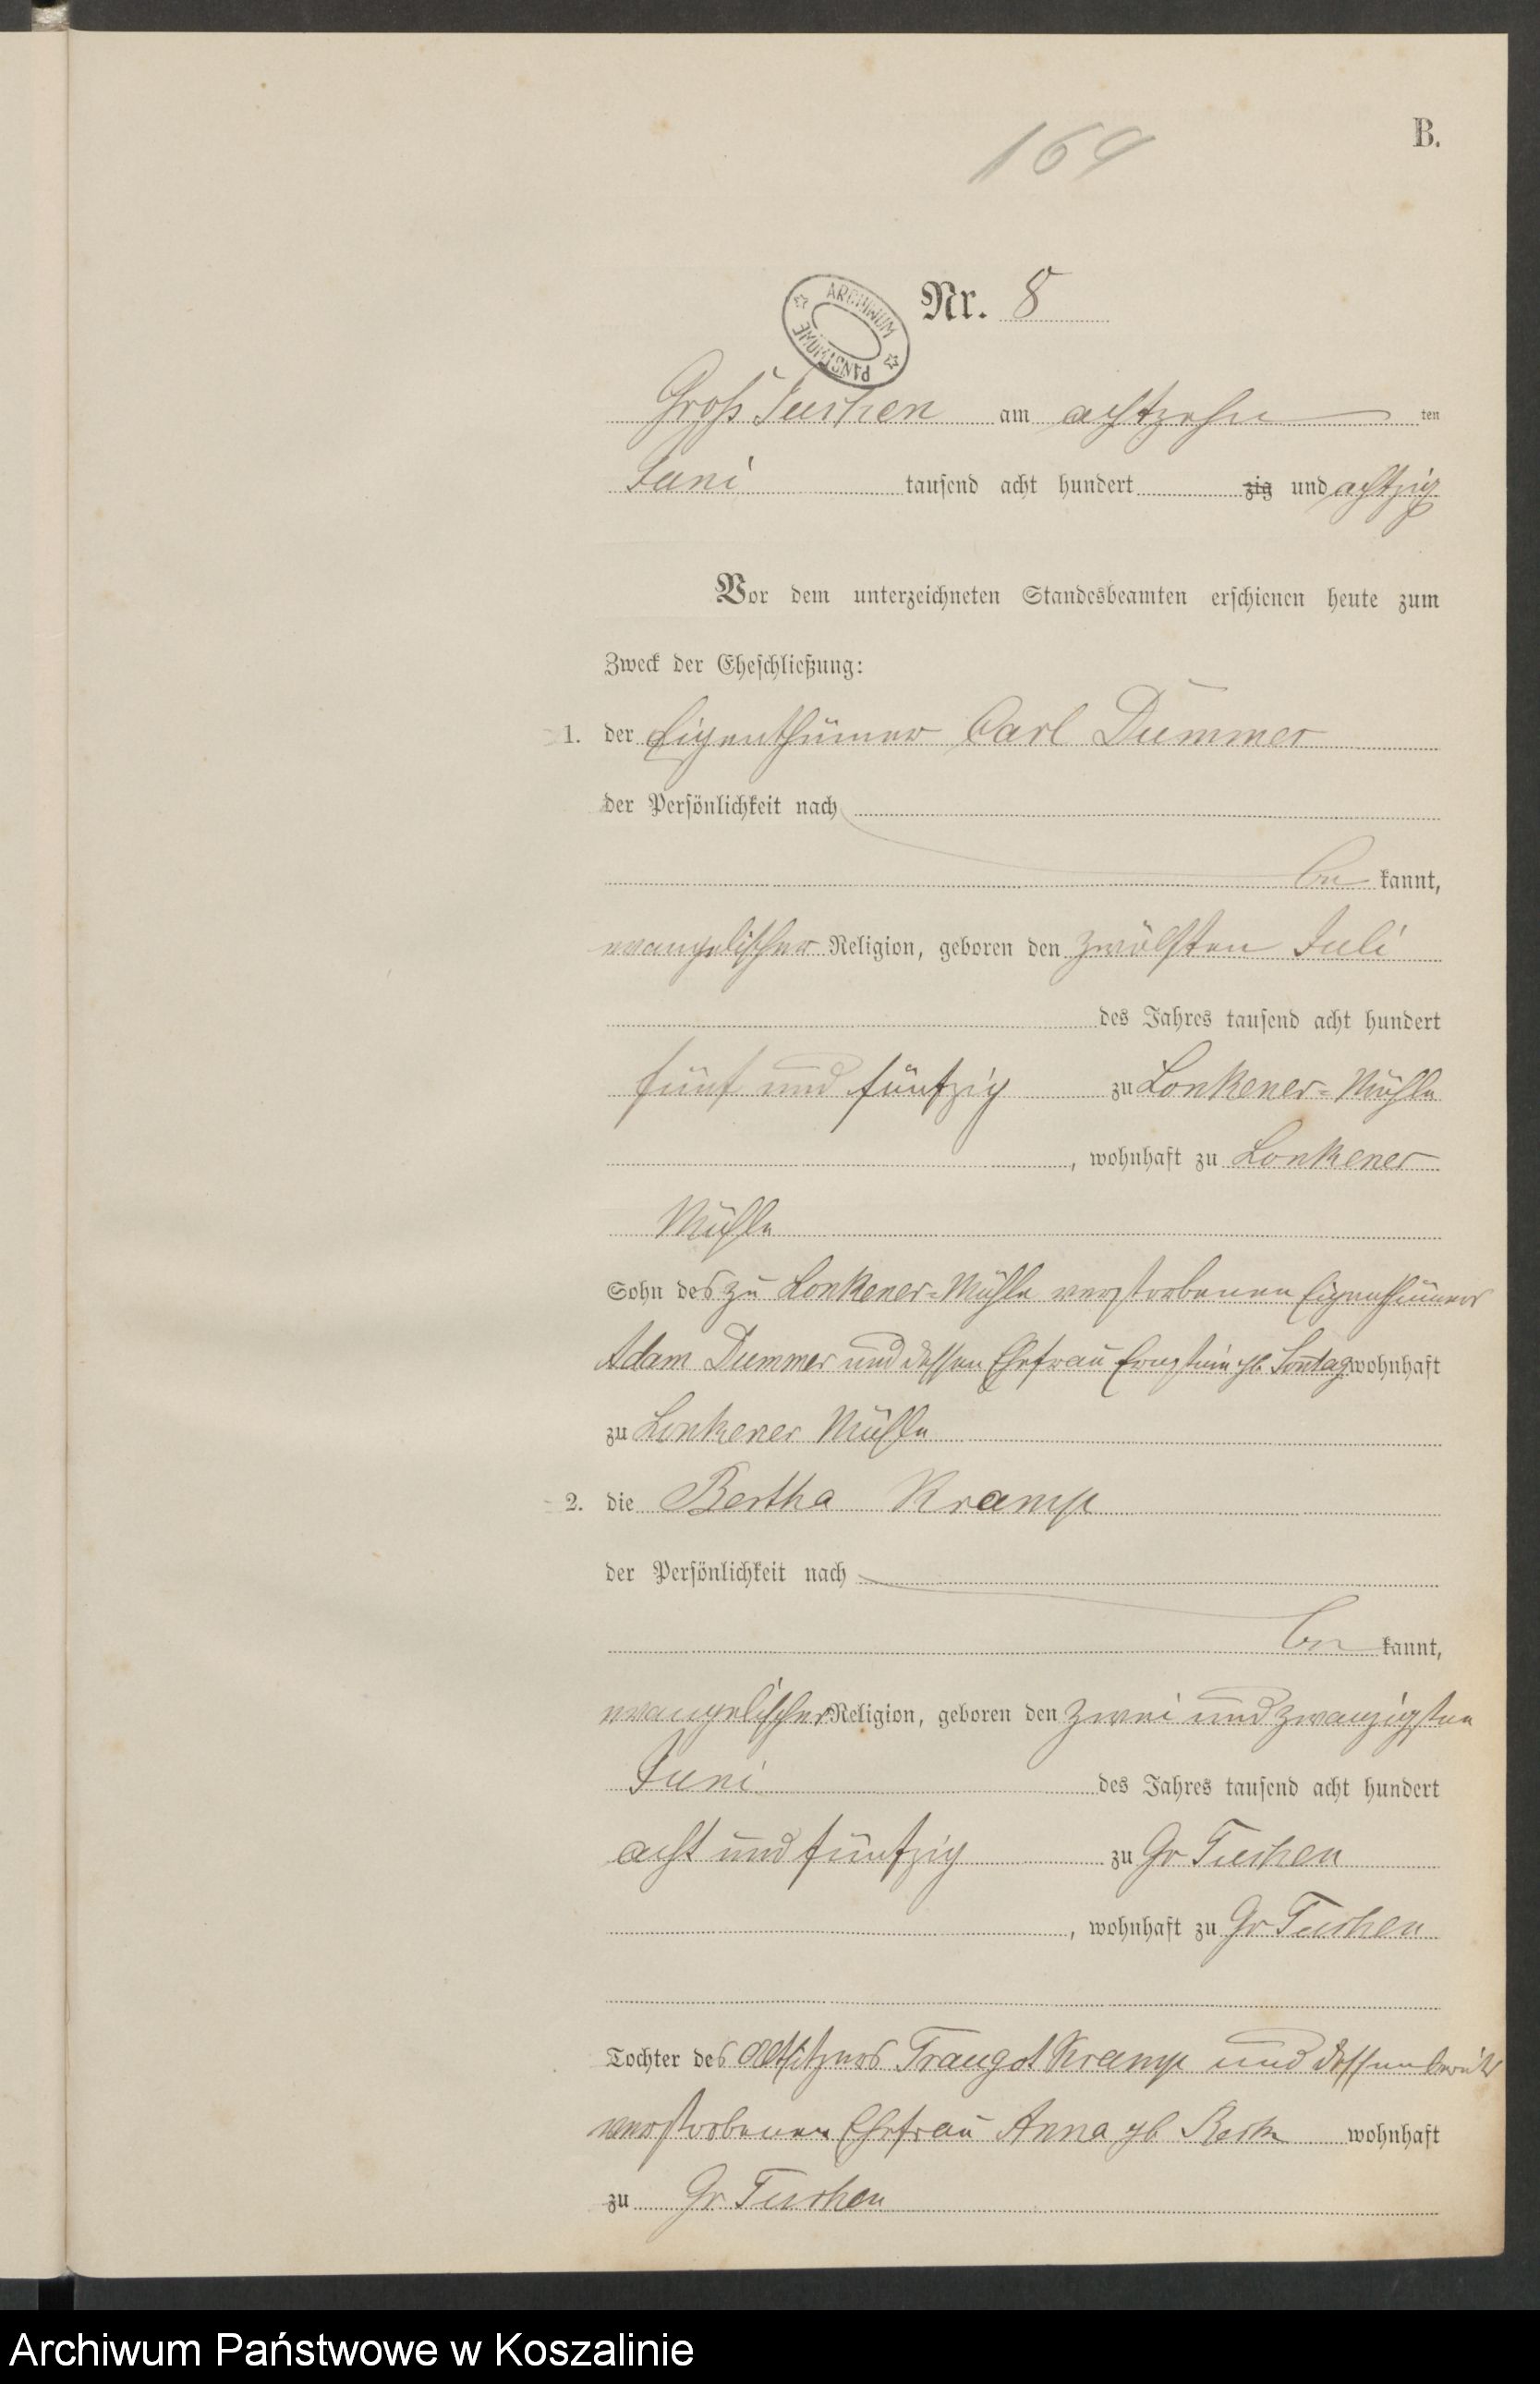 169
B.
ARCHIWUM PAŃSTWOWE
Nr. 8
Groß Tuchen am achtzehn ten
Juni tausend acht hundert zig und achtzig
Vor dem unterzeichneten Standesbeamten erschienen heute zum
Zweck der Eheschließung:
1. der Eigenthümer Carl Dummer
der Persönlichkeit nach
be kannt,
evangelischer Religion, geboren den zwölften Juli
des Jahres tausend acht hundert
fünf und fünfzig zu Lonkener-Mühle
, wohnhaft zu Lonkener
Mühle
Sohn des zu Lonkener-Mühle verstorbenen Eigenthümers
Adam Dummer und dessen Ehefrau gb Sontag wohnhaft
zu Lonkener Mühle
2. die Bertha Kramp
der Persönlichkeit nach
be kannt,
evangelischer Religion, geboren den zwei und zwanzigsten
Juni des Jahres tausend acht hundert
acht und fünfzig zu Gr Tuchen
, wohnhaft zu Gr Tuchen
Tochter des Altsitzers Traugot Kramp und dessen bereits
verstorbenen Ehefrau Anna gb wohnhaft
zu Gr Tuchen
Archiwum Państwowe w Koszalinie